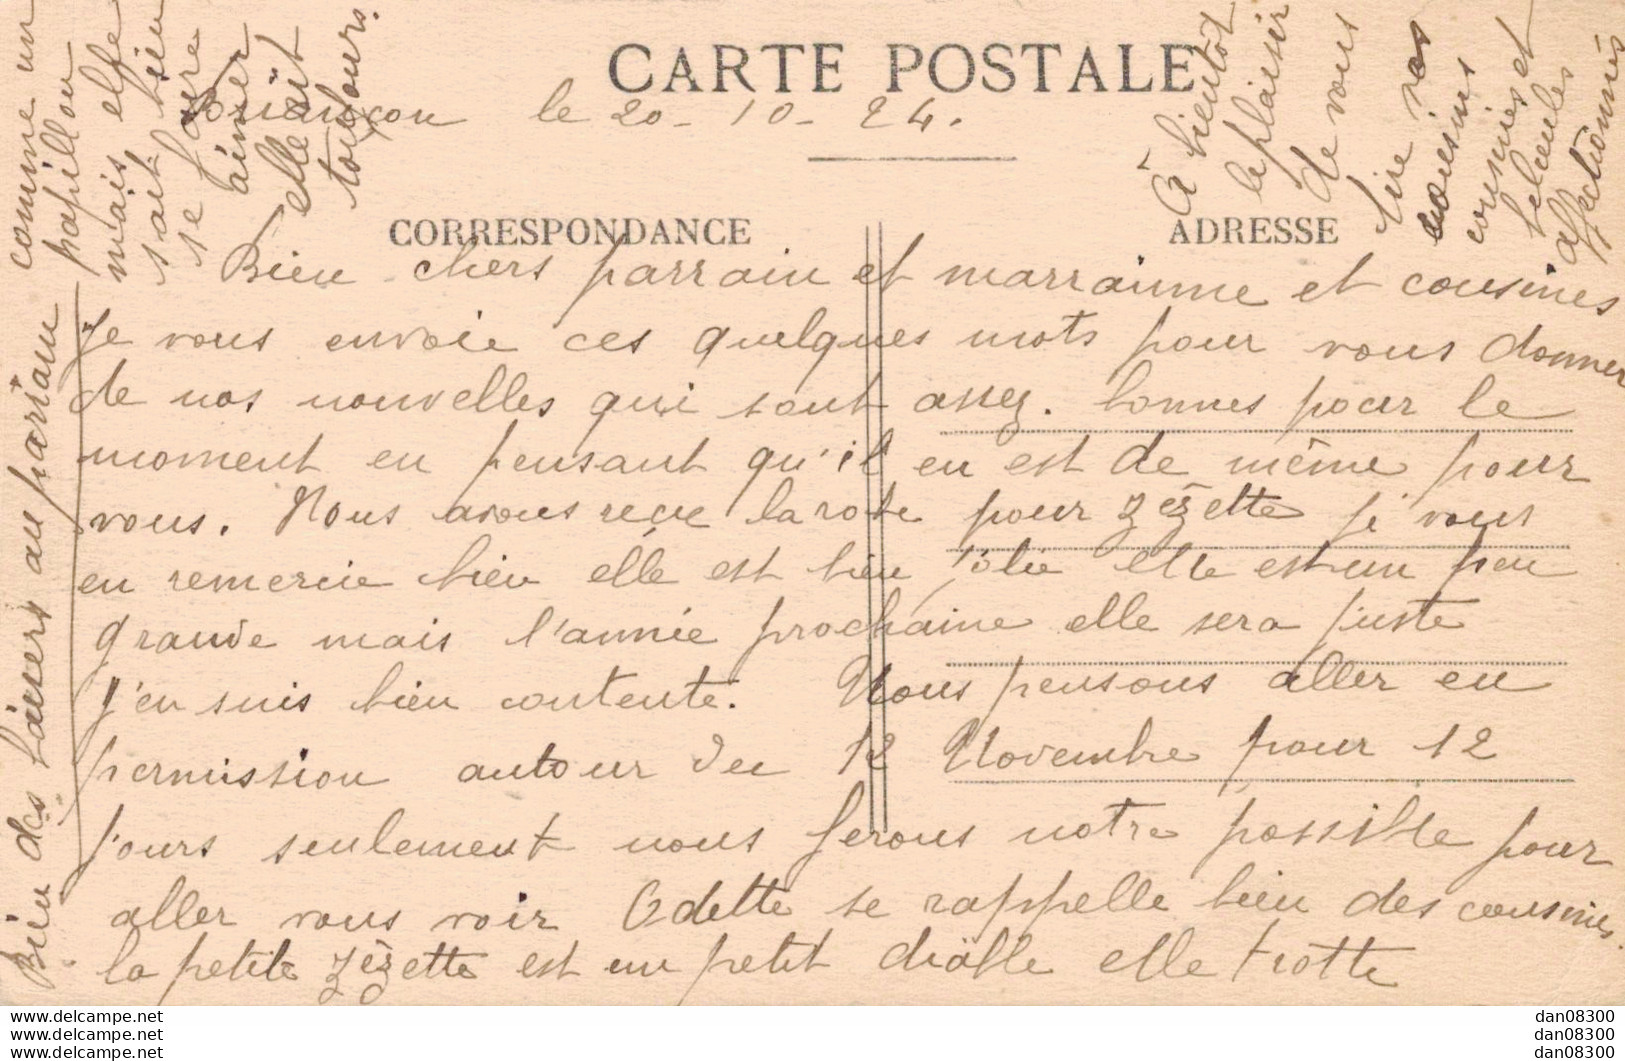 CARTE POSTALE
Briançon le 20-10-24.
CORRESPONDANCE
ADRESSE
Bien chers parrain et marrainne et cousines
Je vous envoie ces quelques mots pour vous donner
de nos nouvelles qui sont assez. bonnes pour le
moment en pensant qu'il en est de même pour
vous. Nous avons reçu la robe pour Zézette je vous
en remercie bien elle est bien jolie elle est un peu
grande mais l'année prochaine elle sera juste
j'en suis bien contente. Nous pensons aller en
permission autour du 12 Novembre pour 12
jours seulement nous ferons notre possible pour
aller vous voir Odette se rappelle bien des cousines.
la petite Zézette est un petit diâlle elle trotte
comme un
papillon
mais elle
sait bien
se faire
aimer
elle rit
toujours.
Bien des baisers au parrain
À bientôt
le plaisir
de vous
lire vos
cousins
cousines et
filleules
affectionnés
www.delcampe.net
www.delcampe.net
www.delcampe.net
dan08300
dan08300
dan08300